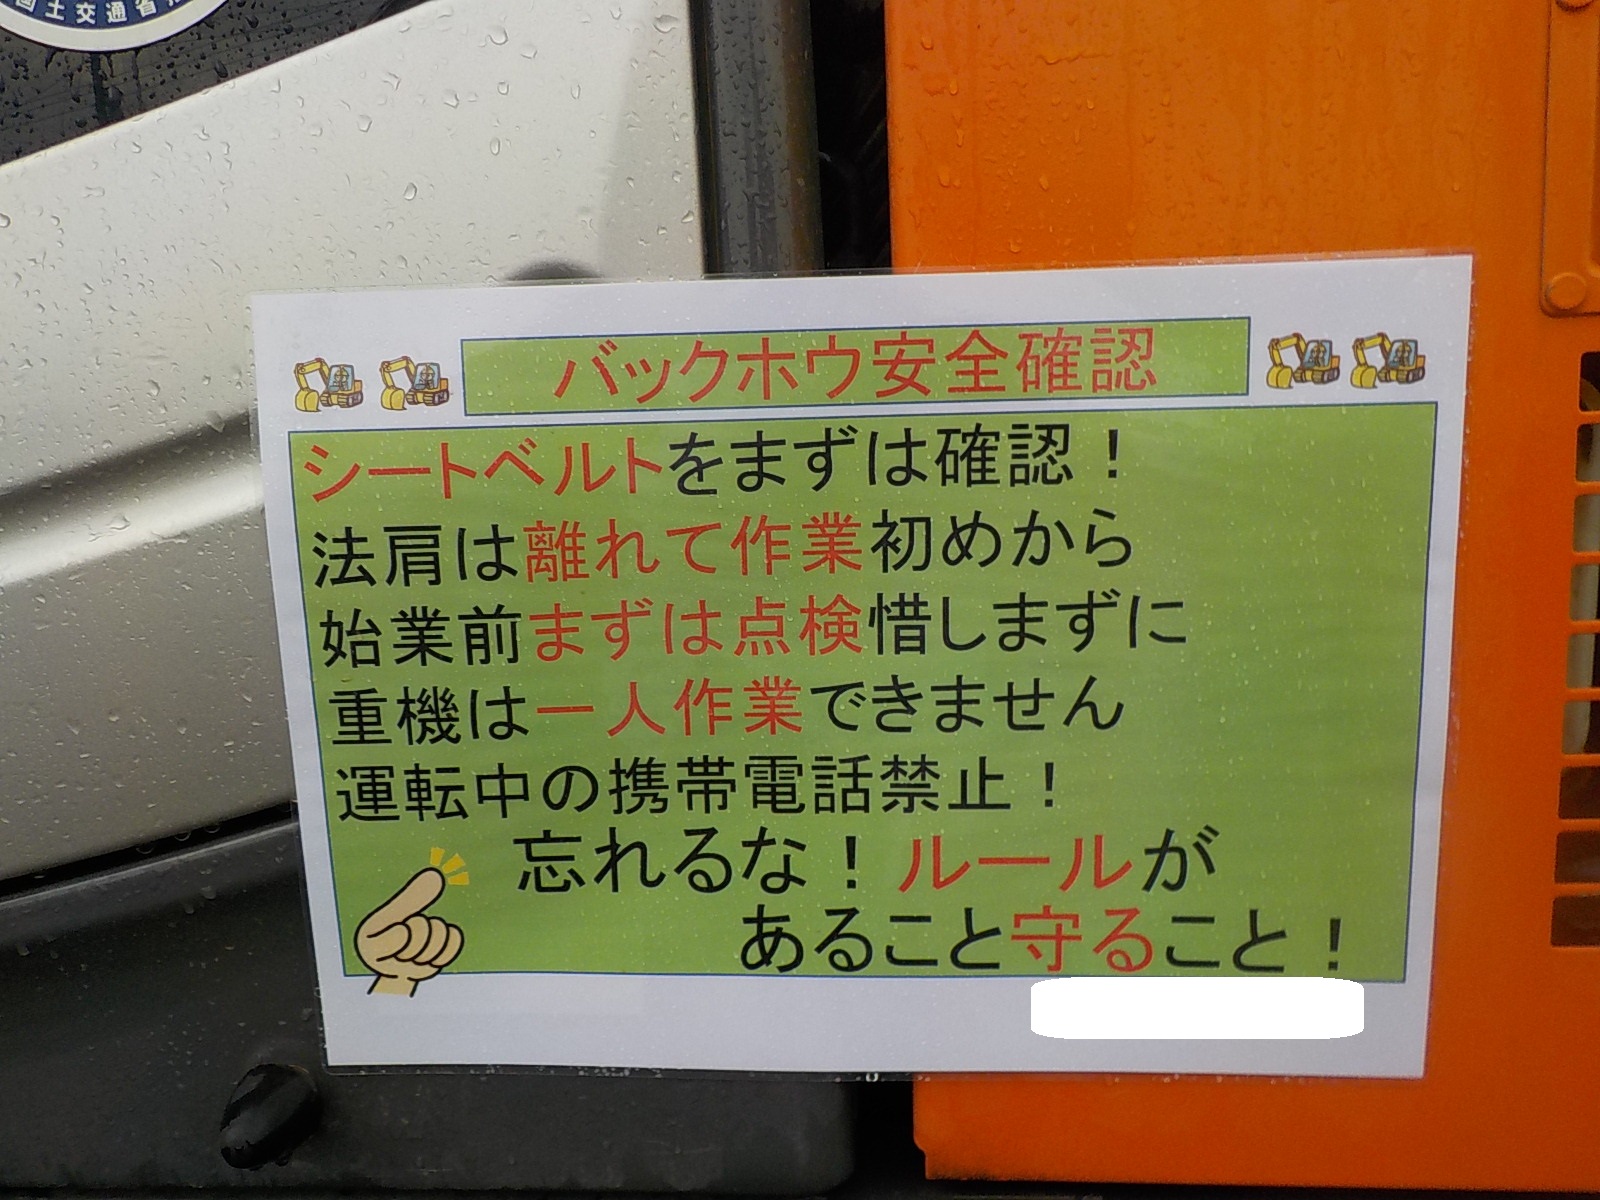 国土交通省
バックホウ安全確認
シートベルトをまずは確認！
法肩は離れて作業初めから
始業前まずは点検惜しまずに
重機は一人作業できません
運転中の携帯電話禁止！
忘れるな！ルールが
あること守ること！